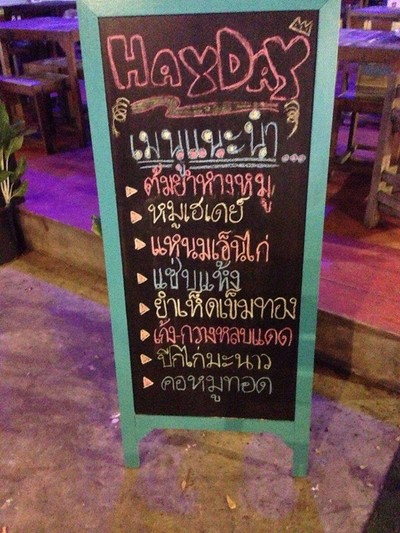 HAYDAY
เมนูแนะนำ...
ต้มยำหางหมู
หมูเฮเดย์
แหนมเอ็นไก่
แซ่บแห้ง
ยำเห็ดเข็มทอง
เก้ง-กวางหลบแดด
ปีกไก่มะนาว
คอหมูทอด